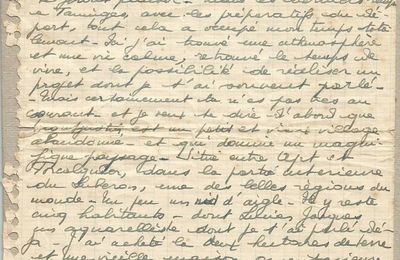 à Taninges, avec les préparatifs du dé-
part, tout cela a occupé mon temps tota-
lement - Ici j'ai trouvé une athmosphère
et une vie calme, retrouvé le temps de
vivre, et la possibilité de réaliser un
projet dont je t'ai souvent parlé -
- Mais certainement tu n'es pas très au
courant et je veux te dire d'abord que
est un petit et vieux village
abandonné - et qui domine un magni-
fique paysage - Situé entre Apt et
Forcalquier, dans la partie intérieure
du Luberon, une des belles régions du
monde - Un peu un nid d'aigle - Il y reste
cinq habitants - dont Jacques
un aquarelliste dont je t'ai parlé dé-
jà - J'ai acheté là deux hectares de terre
et une vieille maison